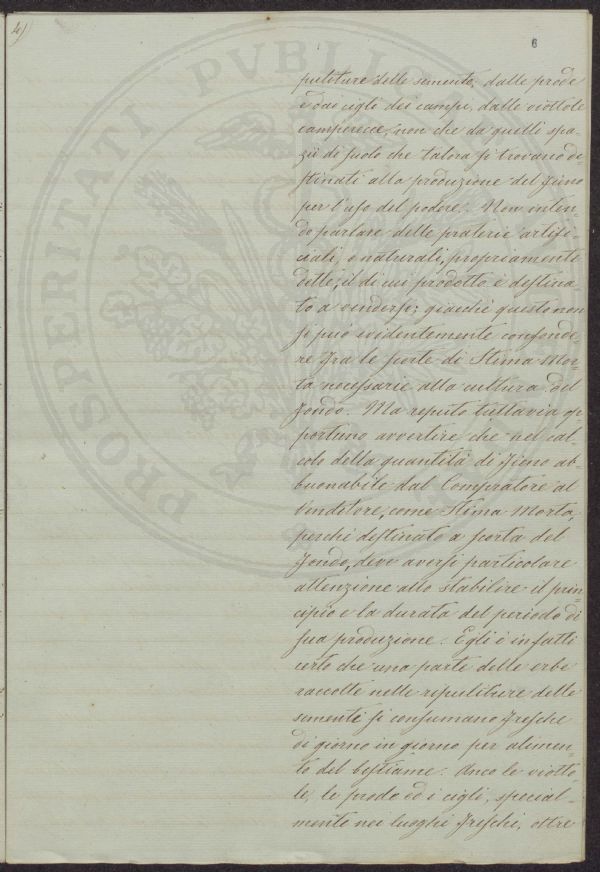 4)
6
pulitura delle sementa, dalle prode
e dai cigli dei campi, dalle viottole
camperecce, non che da quelli spa-
zii di suolo che talora si trovano de-
stinati alla produzione del fieno
per l'uso del podere. Non inten-
do parlare delle praterie artifi-
ciali, o naturali, propriamente
dette, il di cui prodotto è destina-
to a vendersi; giacchè questo non
si può evidentemente confonde-
re fra le scorte di Stima Mor-
ta necessarie alla cultura del
fondo. Ma reputo tuttavia op-
portuno avvertire che nel cal-
colo della quantità di fieno ab-
buonabile dal Compratore al
Venditore, come Stima Morta,
perchè destinato a scorta del
fondo, deve aversi particolare
attenzione allo stabilire il prin-
cipio e la durata del periodo di
sua produzione. Egli è infatti
certo che una parte delle erbe
raccolte nelle ripuliture delle
sementi si consumano fresche
di giorno in giorno per alimen-
to del bestiame. Anco le viotto-
le, le prode ed i cigli, special-
mente nei luoghi freschi, oltre
PROSPERITATI PVBLICAE